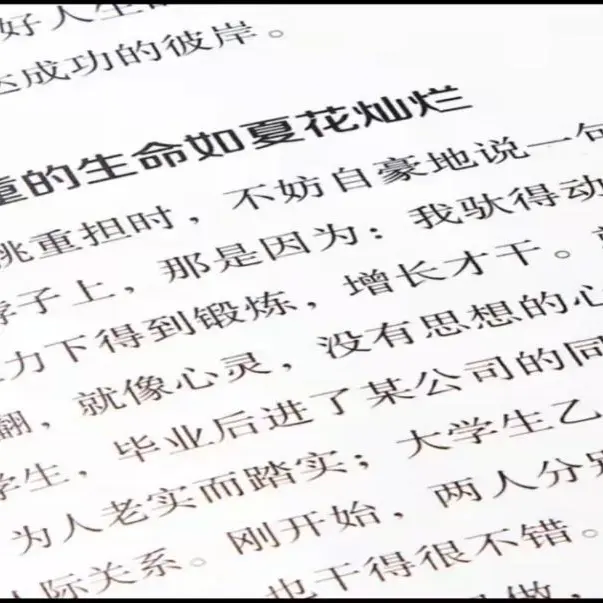 好人生
达成功的彼岸。
重的生命如夏花灿烂
挑重担时，不妨自豪地说一句
脖子上，那是因为：我驮得动
力下得到锻炼，增长才干。
翻，就像心灵，没有思想的心
学生，毕业后进了某公司的同
为人老实而踏实；大学生乙
人际关系。刚开始，两人分别
也干得很不错。